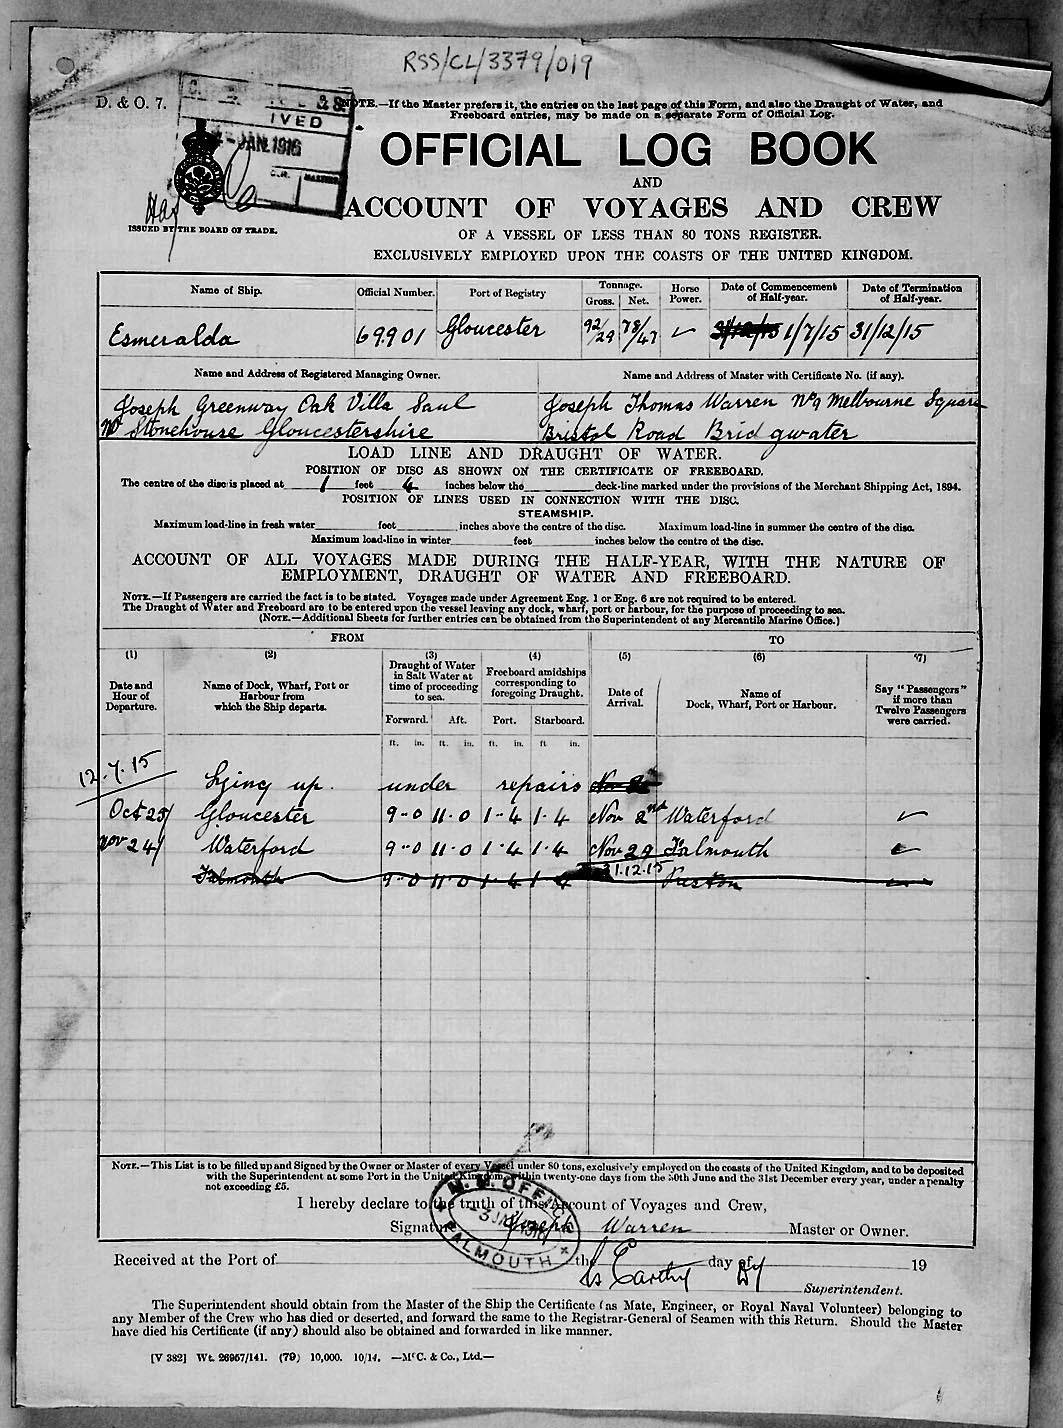 RSS/CL/3379/019
D. & O. 7.
NOTE.—If the Master prefers it, the entries on the last page of this Form, and also the Draught of Water, and
Freeboard entries, may be made on a separate Form of Official Log.
IVED
JAN. 1916
OFFICIAL LOG BOOK
AND
ACCOUNT OF VOYAGES AND CREW
ISSUED BY THE BOARD OF TRADE.
OF A VESSEL OF LESS THAN 80 TONS REGISTER.
EXCLUSIVELY EMPLOYED UPON THE COASTS OF THE UNITED KINGDOM.
Name of Ship. Official Number. Port of Registry Tonnage. Gross. Net. Horse Power. Date of Commencement of Half-year. Date of Termination of Half-year.
Esmeralda 69901 Gloucester 92/29 78/47 ✓ 31/12/15 1/7/15 31/12/15
Name and Address of Registered Managing Owner. Name and Address of Master with Certificate No. (if any).
Joseph Greenway Oak Villa Saul Joseph Thomas Warren No 9 Melbourne Square
Nr Stonehouse Gloucestershire Bristol Road Bridgwater
LOAD LINE AND DRAUGHT OF WATER.
POSITION OF DISC AS SHOWN ON THE CERTIFICATE OF FREEBOARD.
The centre of the disc is placed at 1 feet 4 inches below the deck-line marked under the provisions of the Merchant Shipping Act, 1894.
POSITION OF LINES USED IN CONNECTION WITH THE DISC.
STEAMSHIP.
Maximum load-line in fresh water feet inches above the centre of the disc. Maximum load-line in summer the centre of the disc.
Maximum load-line in winter feet inches below the centre of the disc.
ACCOUNT OF ALL VOYAGES MADE DURING THE HALF-YEAR, WITH THE NATURE OF
EMPLOYMENT, DRAUGHT OF WATER AND FREEBOARD.
NOTE.—If Passengers are carried the fact is to be stated. Voyages made under Agreement Eng. 1 or Eng. 6 are not required to be entered.
The Draught of Water and Freeboard are to be entered upon the vessel leaving any dock, wharf, port or harbour, for the purpose of proceeding to sea.
(NOTE.—Additional Sheets for further entries can be obtained from the Superintendent of any Mercantile Marine Office.)
FROM TO
(1) (2) (3) (4) (5) (6) (7)
Date and Hour of Departure. Name of Dock, Wharf, Port or Harbour from which the Ship departs. Draught of Water in Salt Water at time of proceeding to sea. Freeboard amidships corresponding to foregoing Draught. Date of Arrival. Name of Dock, Wharf, Port or Harbour. Say "Passengers" if more than Twelve Passengers were carried.
Forward. Aft. Port. Starboard.
ft. in. ft. in. ft. in. ft in.
12.7.15 Lying up. under repairs Nov 2
Oct 25 Gloucester 9-0 11-0 1-4 1-4 Nov 2nd Waterford ✓
Nov 24 Waterford 9-0 11-0 1-4 1-4 Nov 29 Falmouth
31.12.15
Falmouth 9-0 11-0 1-4 1-4 Preston
NOTE.—This List is to be filled up and Signed by the Owner or Master of every Vessel under 80 tons, exclusively employed on the coasts of the United Kingdom, and to be deposited
with the Superintendent at some Port in the United Kingdom, within twenty-one days from the 30th June and the 31st December every year, under a penalty
not exceeding £5.
I hereby declare to the truth of this Account of Voyages and Crew,
Signature Joseph Warren Master or Owner.
M. M. OFFICE
3 JAN 1916
FALMOUTH
Received at the Port of the day of 19
Superintendent.
The Superintendent should obtain from the Master of the Ship the Certificate (as Mate, Engineer, or Royal Naval Volunteer) belonging to
any Member of the Crew who has died or deserted, and forward the same to the Registrar-General of Seamen with this Return. Should the Master
have died his Certificate (if any) should also be obtained and forwarded in like manner.
[V 382] Wt. 26957/141. (79) 10,000. 10/14. —McC. & Co., Ltd.—